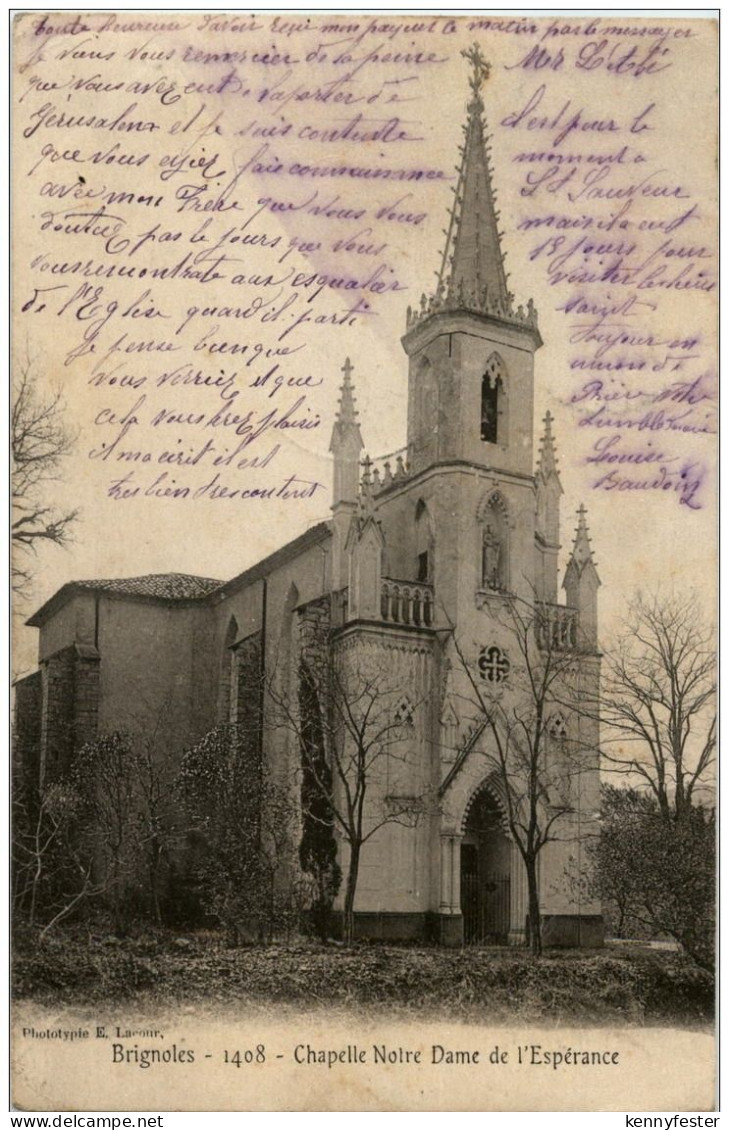 toute heureuse davoir reçu mon paquet le matin par le messager
je viens vous remercier de la peine
que vous avez eut de laporter de
Jérusalem et je suis contente
que vous ayiez fais connaissance
avec mon Frère que vous vous
doutiez pas le jours que vous
vous remontrate aux esqualier
de l'Eglise quand il parti
je pense bien que
vous verriez et que
cela vous fera plaisir
il m'a écrit il est
très bien très content
Mr L'abé
c'est pour le
moment a
St Sauveur
mais il a eut
15 jours pour
visiter les lieux
saint
toujour en
union de
Prière votre
humble
Louise
Baudoin
Phototypie E. Lacour,
Brignoles - 1408 - Chapelle Notre Dame de l'Espérance
kennyfester